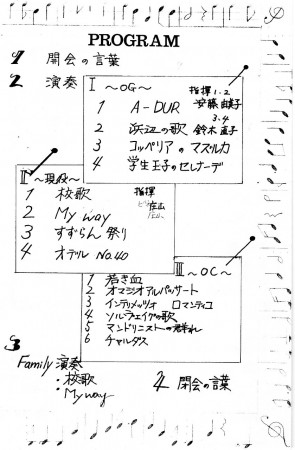 PROGRAM
1 開会の言葉
2 演奏
I ～OG～
指揮 1.2
安藤由美子
3.4
鈴木直子
1 A-DUR
2 浜辺の歌
3 コッペリアのマズルカ
4 学生王子のセレナーデ
II ～現役～
指揮
1 校歌
2 My way
3 すずらん祭り
4 オデル No.40
III ～OC～
1 若き血
2 オマジオアルパッサート
3 インテルメッツォ ロマンティコ
4 ソルヴェイグの歌
5 マンドリニストの群れ
6 チャルダス
3
Family 演奏
・校歌
・My way
4 閉会の言葉